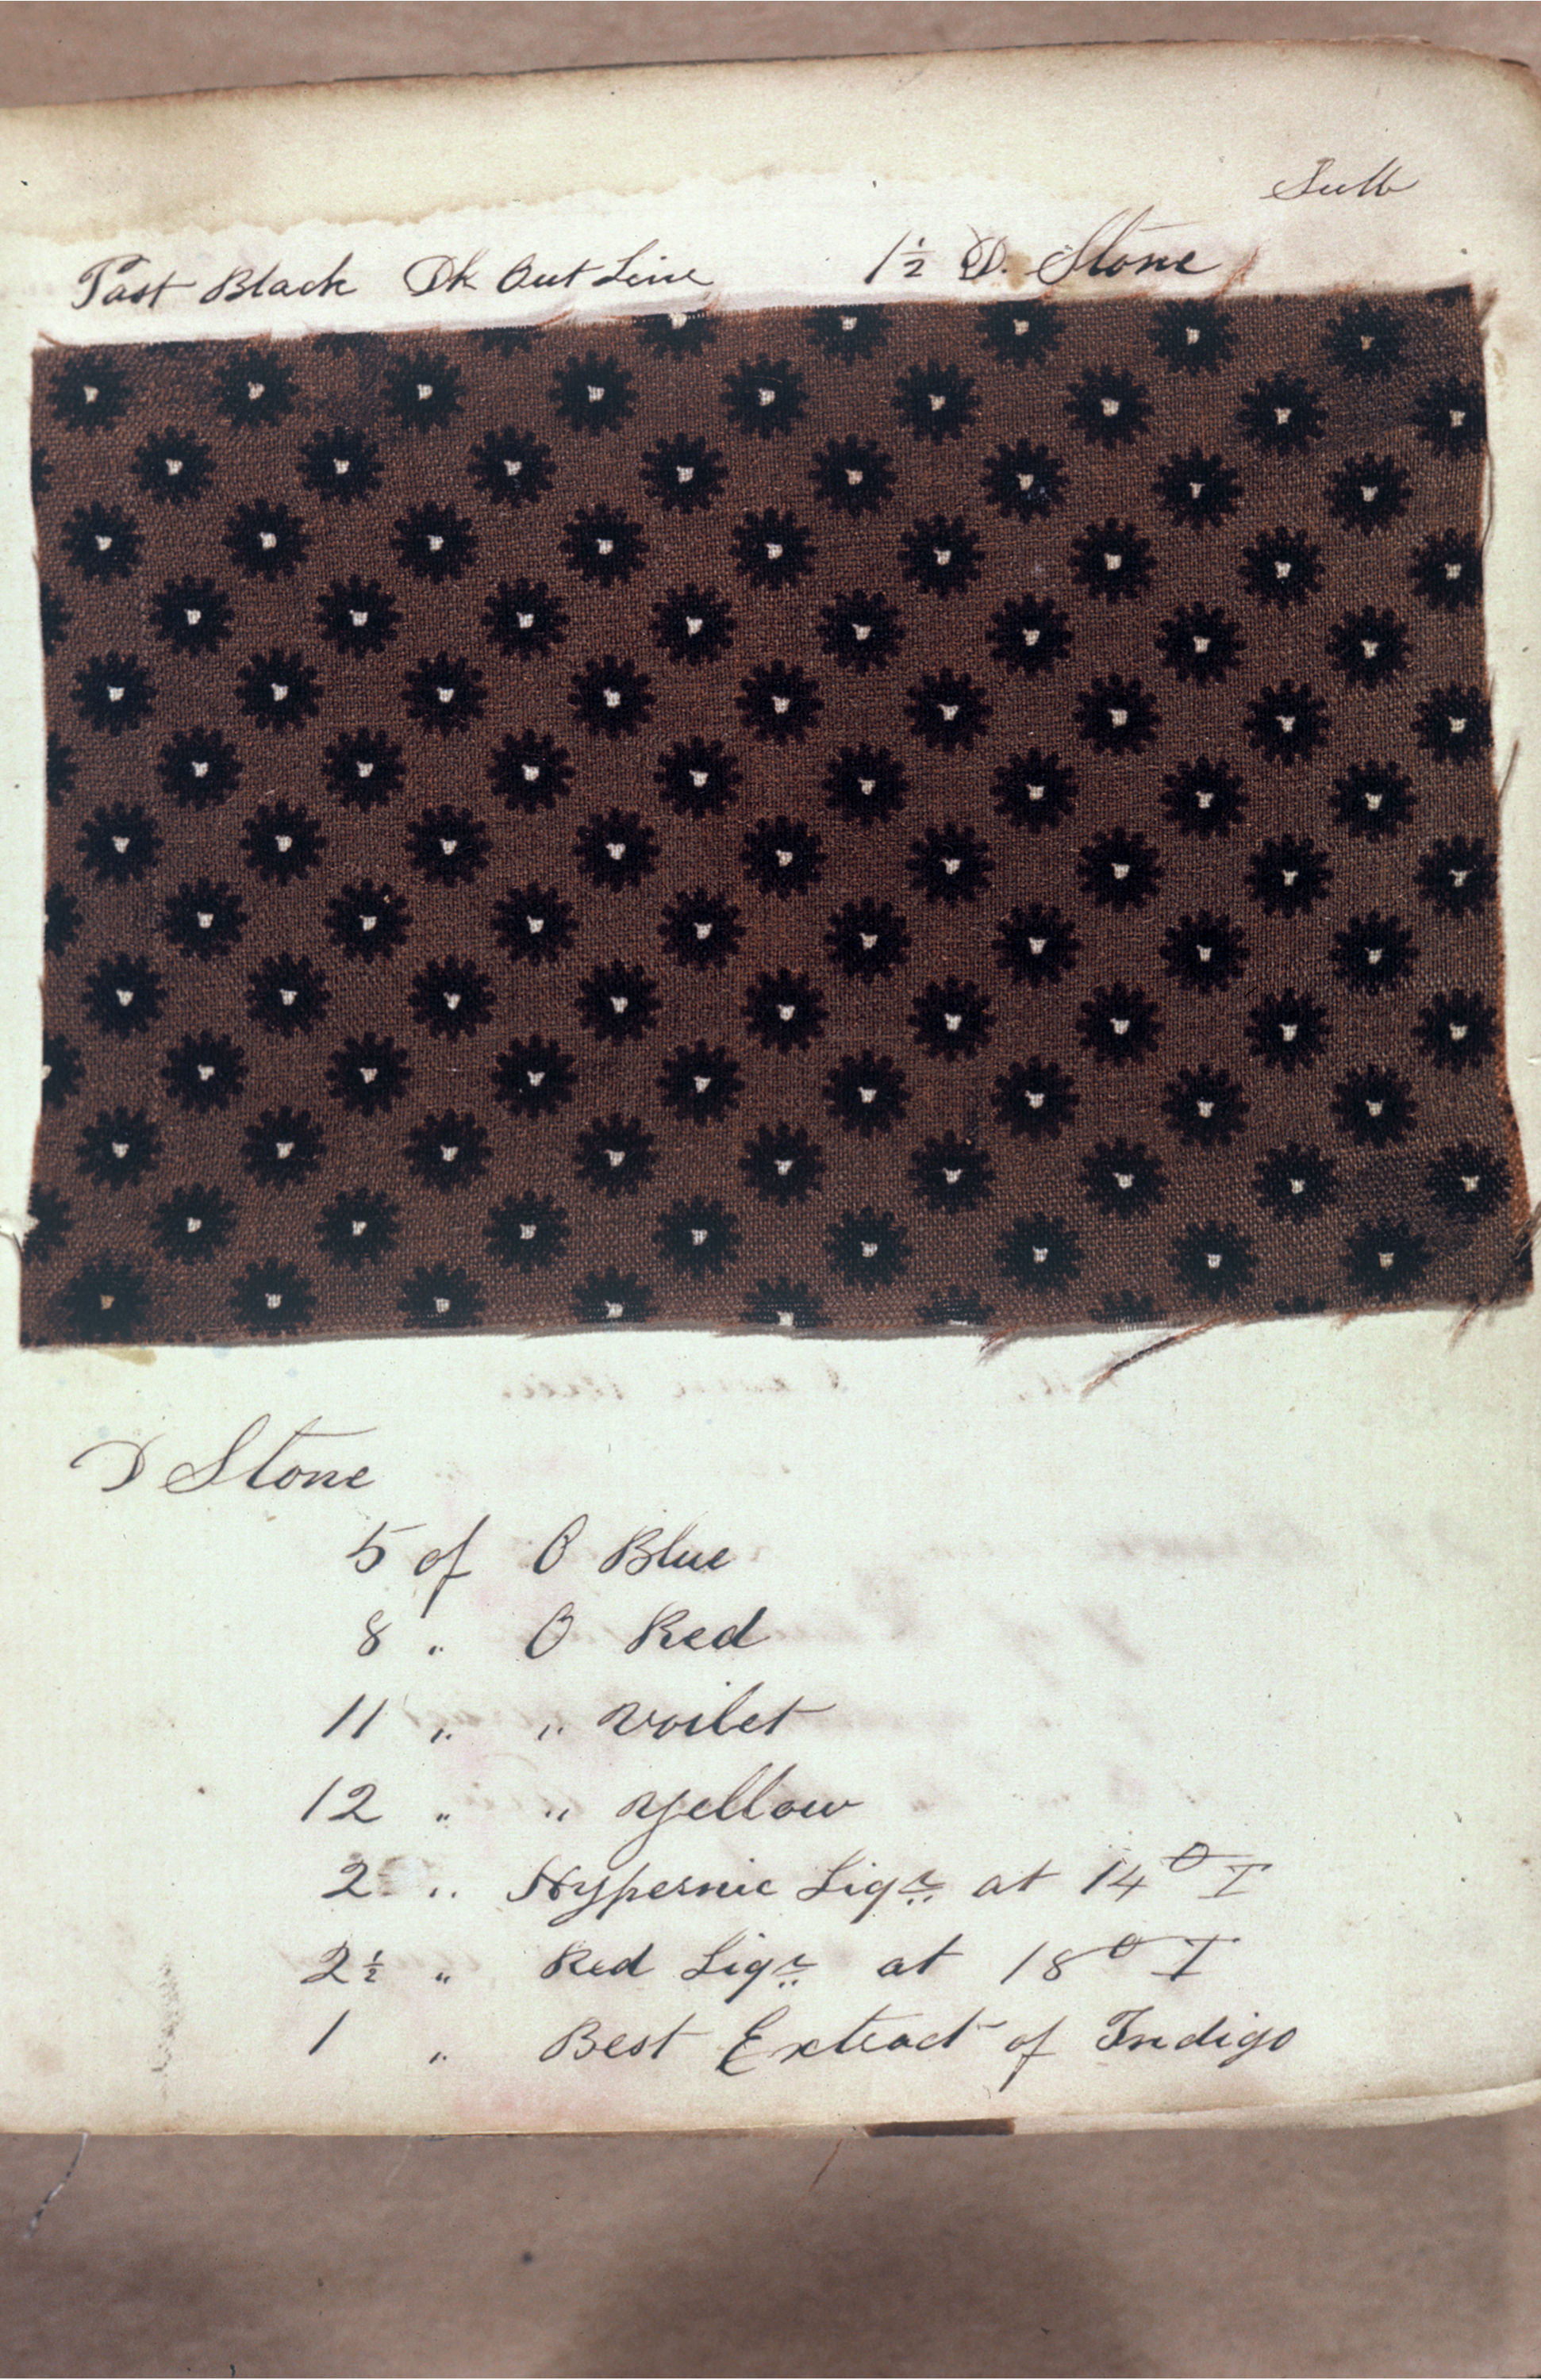 Past Black Dk Out Line 1½ D. Stone
D Stone
5 of O Blue
8 " O Red
11 " " voilet
12 " " Yellow
2 " Hypernic Liqr at 14° T
2½ " Red Liqr at 18° T
1 " Best Extract of Indigo